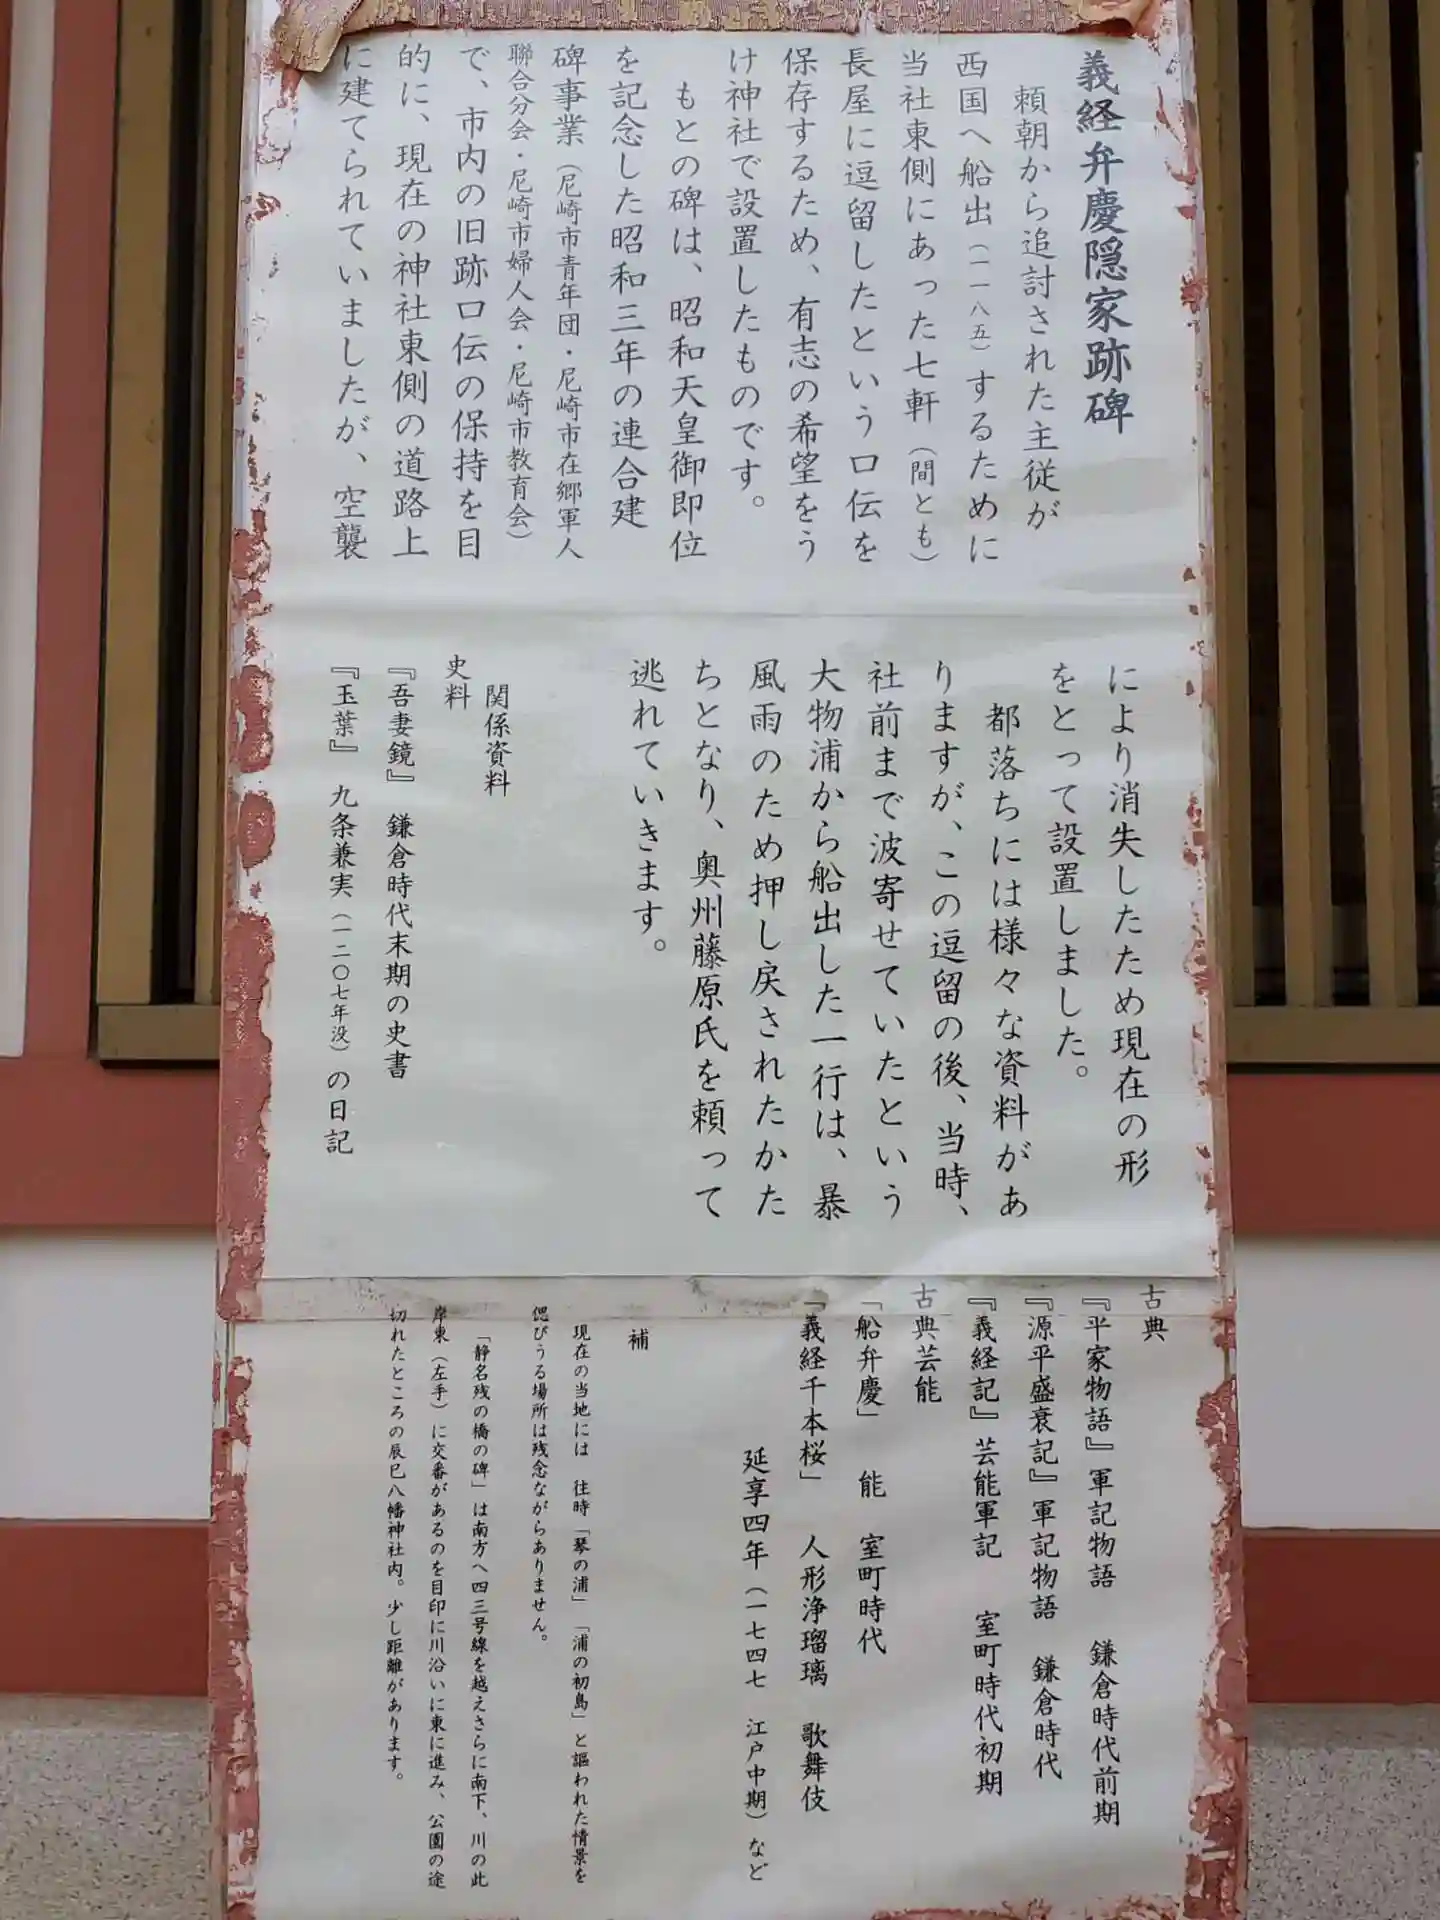 義経弁慶隠家跡碑
頼朝から追討された主従が
西国へ船出（一一八五）するために
当社東側にあった七軒（間とも）
長屋に逗留したという口伝を
保存するため、有志の希望をう
け神社で設置したものです。
もとの碑は、昭和天皇御即位
を記念した昭和三年の連合建
碑事業（尼崎市青年団・尼崎市在郷軍人
聯合分会・尼崎市婦人会・尼崎市教育会）
で、市内の旧跡口伝の保持を目
的に、現在の神社東側の道路上
に建てられていましたが、空襲
により消失したため現在の形
をとって設置しました。
都落ちには様々な資料があ
りますが、この逗留の後、当時、
社前まで波寄せていたという
大物浦から船出した一行は、暴
風雨のため押し戻されたかた
ちとなり、奥州藤原氏を頼って
逃れていきます。
関係資料
史料
『吾妻鏡』 鎌倉時代末期の史書
『玉葉』 九条兼実（一二〇七年没）の日記
古典
『平家物語』軍記物語 鎌倉時代前期
『源平盛衰記』軍記物語 鎌倉時代
『義経記』芸能軍記 室町時代初期
古典芸能
「船弁慶」 能 室町時代
「義経千本桜」 人形浄瑠璃 歌舞伎
延享四年（一七四七 江戸中期）など
補
現在の当地には 往時「琴の浦」「浦の初島」と謳われた情景を
偲びうる場所は残念ながらありません。
「静名残の橋の碑」は南方へ四三号線を越えさらに南下、川の此
岸東（左手）に交番があるのを目印に川沿いに東に進み、公園の途
切れたところの辰巳八幡神社内。少し距離があります。